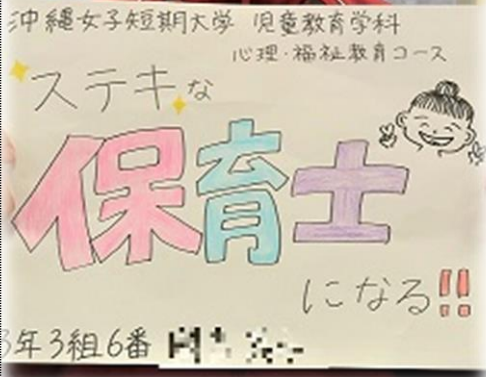 沖縄女子短期大学 児童教育学科
心理・福祉教育コース
ステキな
保育士
になる!!
3年3組6番